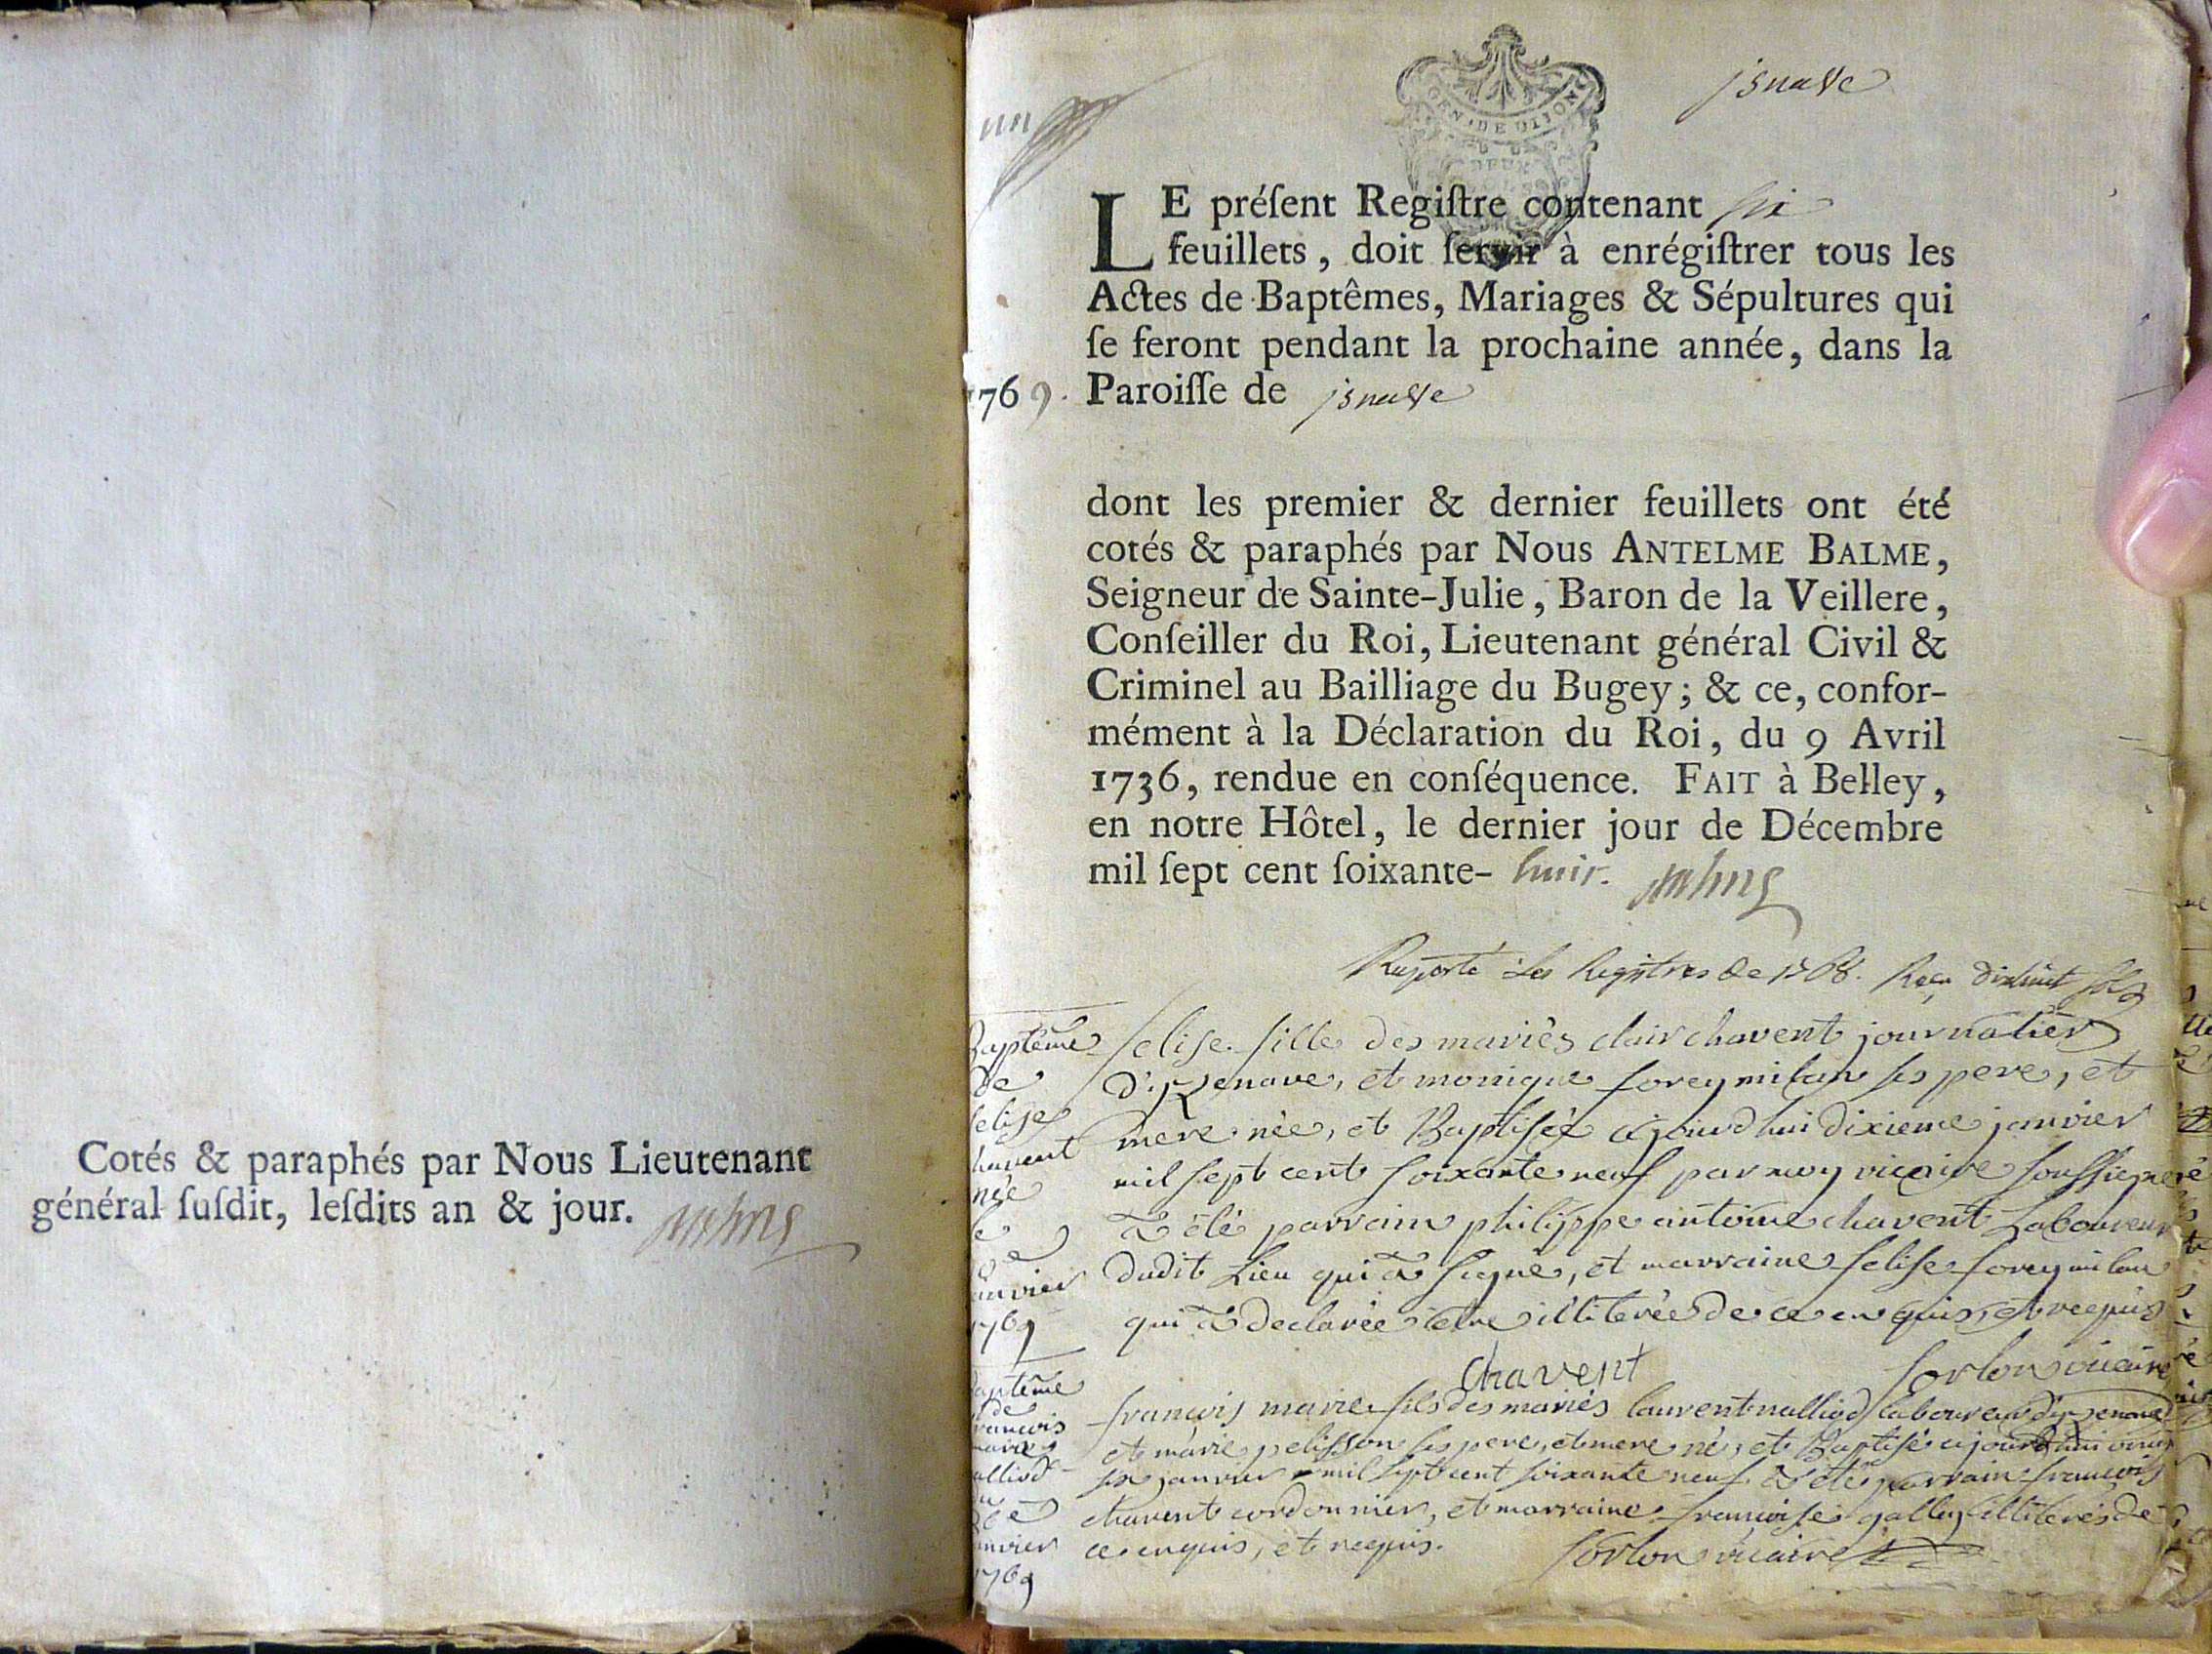 Cotés & paraphés par Nous Lieutenant
général ſuſdit, leſdits an & jour.
GEN. DE DIJON
DEUX
LE préſent Regiſtre contenant ſix
feuillets, doit ſervir à enrégiſtrer tous les
Actes de Baptêmes, Mariages & Sépultures qui
ſe feront pendant la prochaine année, dans la
1769. Paroiſſe de
dont les premier & dernier feuillets ont été
cotés & paraphés par Nous ANTELME BALME,
Seigneur de Sainte-Julie, Baron de la Veillere,
Conſeiller du Roi, Lieutenant général Civil &
Criminel au Bailliage du Bugey; & ce, confor-
mément à la Déclaration du Roi, du 9 Avril
1736, rendue en conſéquence. FAIT à Belley,
en notre Hôtel, le dernier jour de Décembre
mil ſept cent ſoixante- huit.
Raporté Les Registres de 1768. Reçu
Baptême
de
felise
chavent
née
le
janvier
1769
felise fille des mariés clair chavent journalier
et monique foreymilan ses pere, et
mere née, et Baptisée ajourdhui dixieme janvier
mil sept cent soixante neuf par moy vicaire soussigné
a été parrain philippe antoine chavent Laboureur
dudit Lieu qui a signé, et marraine felise foreymilan
qui a declarée être illiterée de ce enquis, et requis
chavent sorlon vicaire
Baptême
de
francois
marie
nalliod
janvier
1769
francois marie fils des mariés laurent nalliod laboureur
et marie pelisson ses pere, et mere né, et Baptisé ajourdhui vingt
six janvier mil sept cent soixante neuf a été parrain francois
chavent cordonnier, et marraine francoise galley illiterés de
ce enquis, et requis. sorlon vicaire